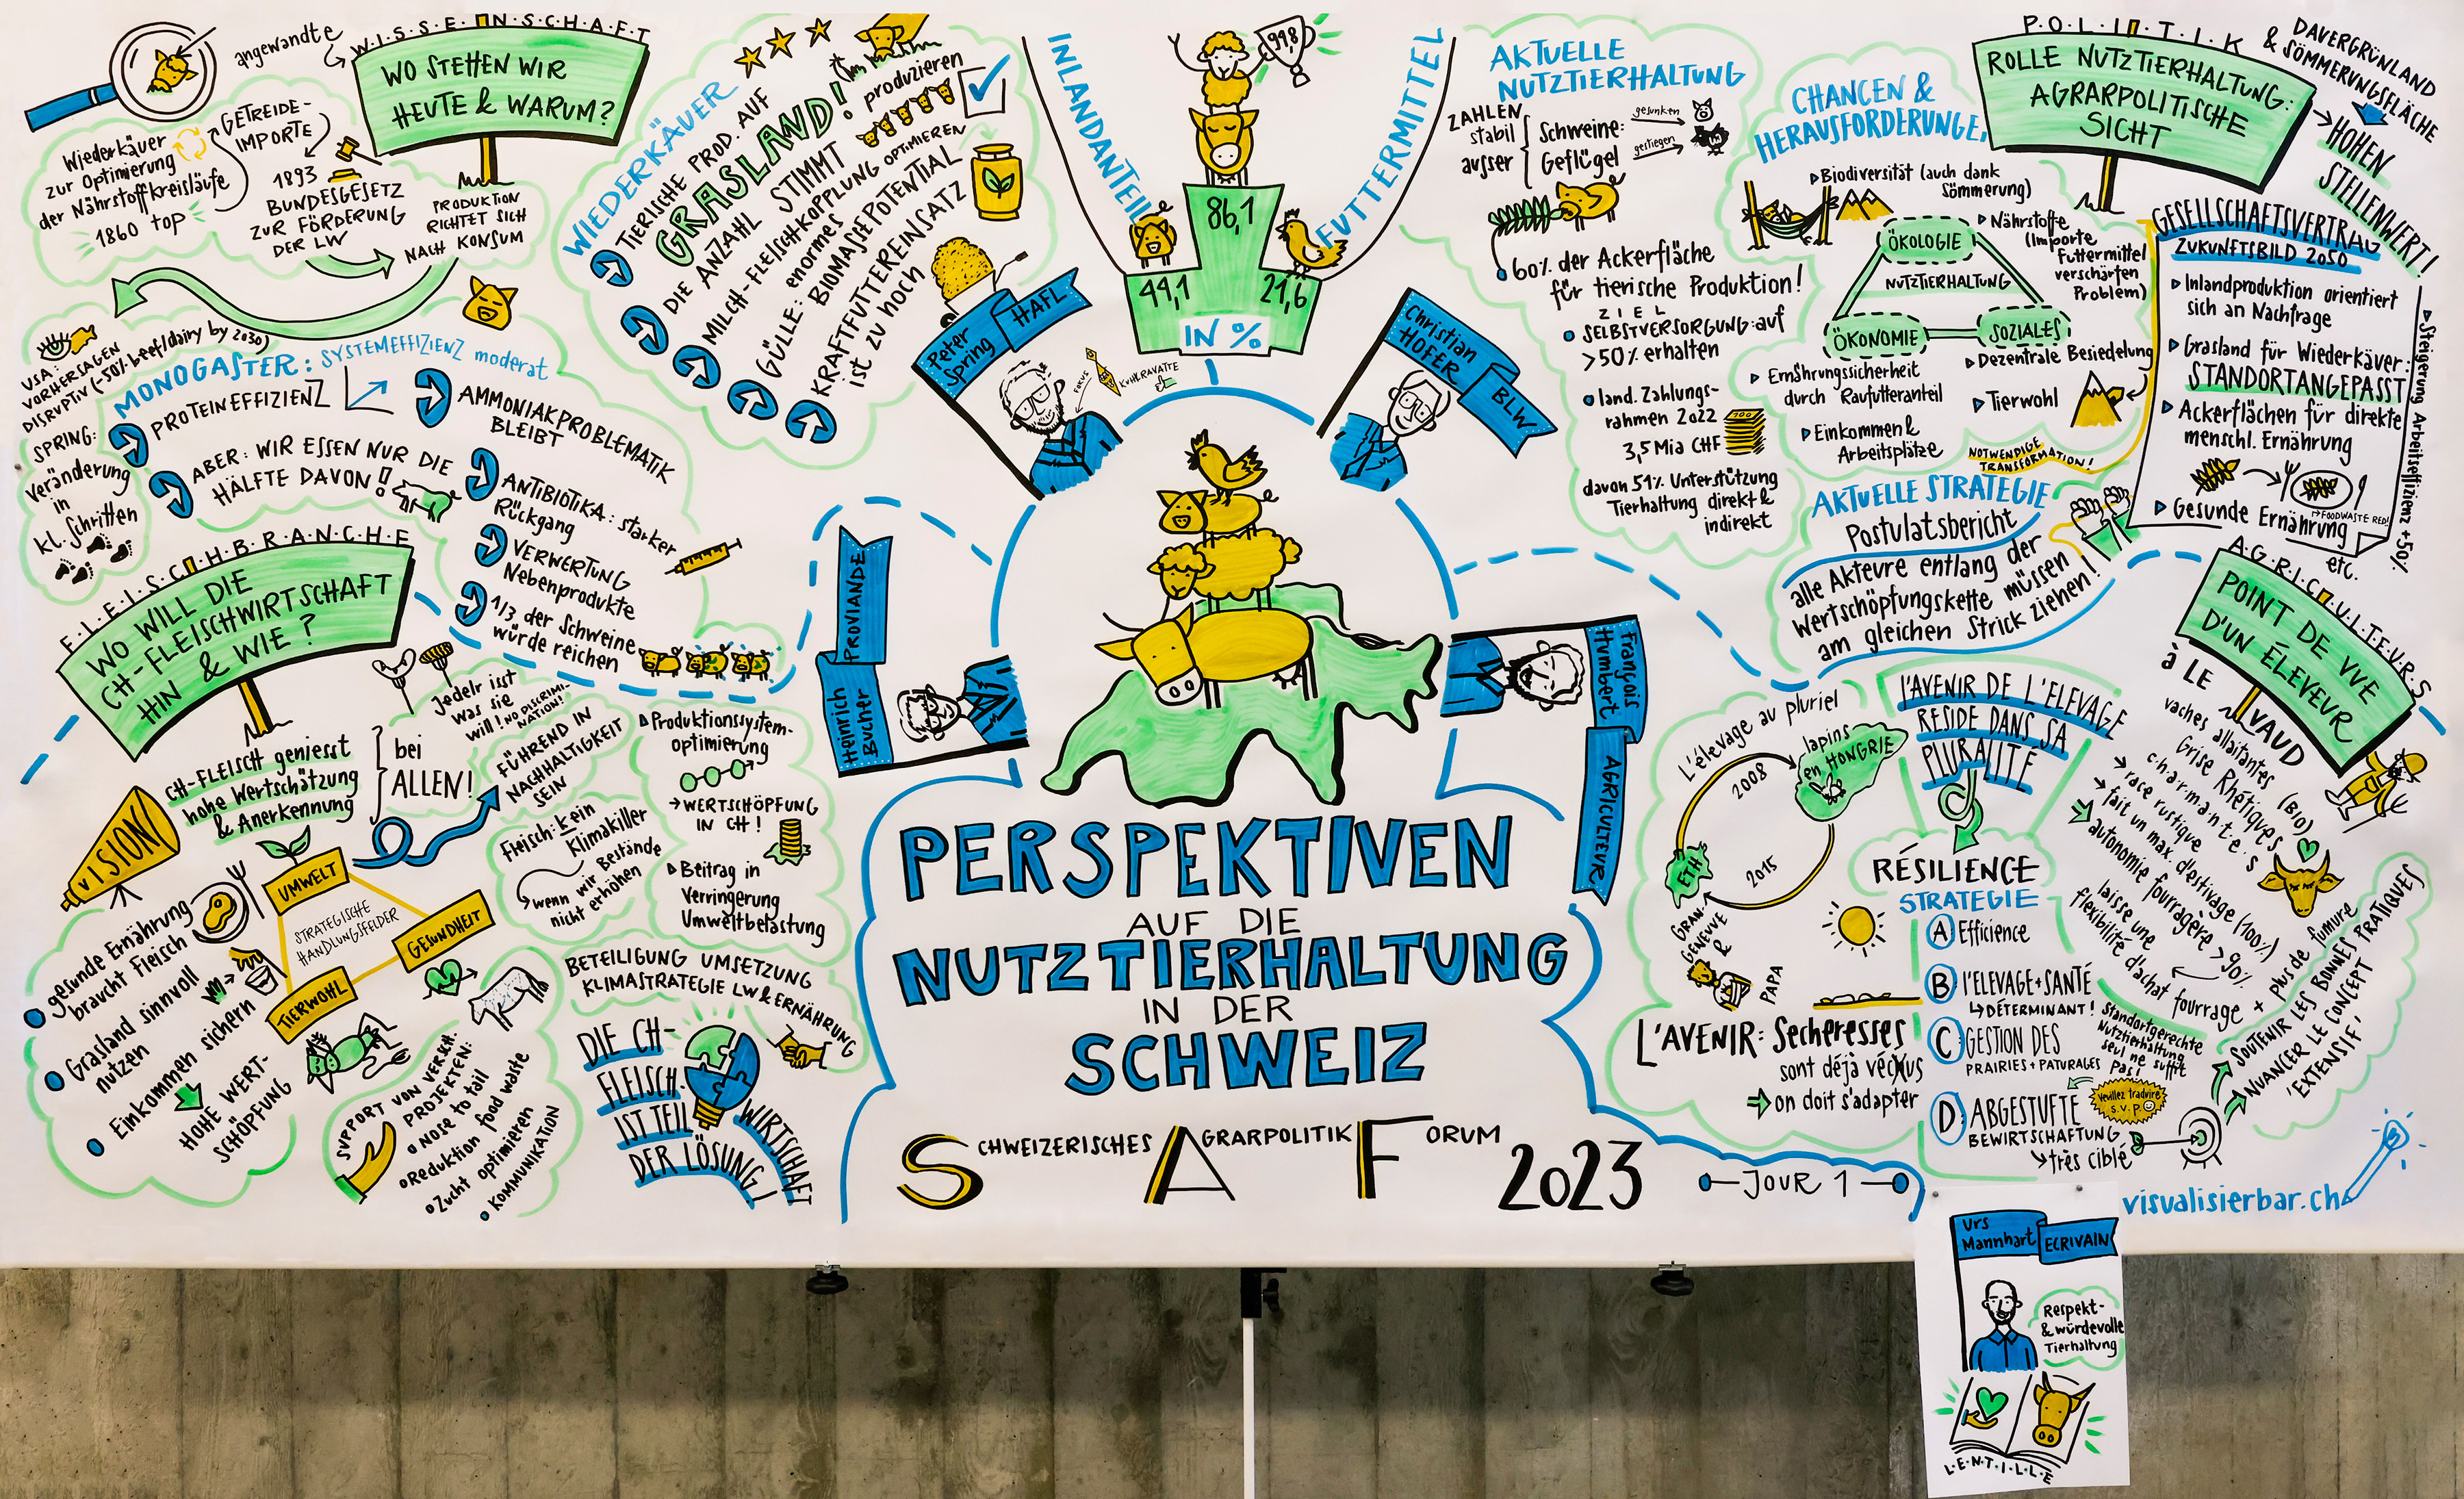 angewandte
W·I·S·S·E·N·S·C·H·A·F·T
WO STEHEN WIR
HEUTE & WARUM?
Wiederkäuer
zur Optimierung
der Nährstoffkreisläufe
1860 top
GETREIDE-
IMPORTE
1893
BUNDESGESETZ
ZUR FÖRDERUNG
DER LW
PRODUKTION
RICHTET SICH
NACH KONSUM
USA:
VORHERSAGEN
DISRUPTIV (-50% beef/dairy by 2030)
SPRING:
Veränderung
in
kl. Schritten
MONOGASTER: SYSTEMEFFIZIENZ moderat
PROTEINEFFIZIENZ
ABER: WIR ESSEN NUR DIE
HÄLFTE DAVON!
AMMONIAKPROBLEMATIK
BLEIBT
ANTIBIOTIKA: starker
Rückgang
VERWERTUNG
Nebenprodukte
1/3 der Schweine
würde reichen
WIEDERKÄUER
TIERISCHE PROD. AUF
GRASLAND!
produzieren
DIE ANZAHL STIMMT
MILCH-FLEISCHKOPPLUNG OPTIMIEREN
GÜLLE: enormes
BIOMASSEPOTENTIAL
KRAFTFUTTEREINSATZ
ist zu hoch
Peter
Spring
HAFL
FOCUS
KUHKRAVATTE
INLANDANTEIL
FUTTERMITTEL
99,8
86,1
49,1
21,6
IN %
Christian
HOFER
BLW
AKTUELLE
NUTZTIERHALTUNG
ZAHLEN
stabil
ausser
Schweine:
Geflügel
gesunken
gestiegen
60% der Ackerfläche
für tierische Produktion!
ZIEL
SELBSTVERSORGUNG: auf
>50% erhalten
land. Zahlungs-
rahmen 2022
3,5 Mia CHF
100
davon 51% Unterstützung
Tierhaltung direkt &
indirekt
CHANCEN &
HERAUSFORDERUNGE.
Biodiversität (auch dank
Sömmerung)
Nährstoffe
(Importe
Futtermittel
verschärfen
Problem)
ÖKOLOGIE
NUTZTIERHALTUNG
ÖKONOMIE
SOZIALES
Dezentrale Besiedelung
Tierwohl
Ernährungssicherheit
durch Raufutteranteil
Einkommen &
Arbeitsplätze
NOTWENDIGE
TRANSFORMATION!
AKTUELLE STRATEGIE
Postulatsbericht
alle Akteure entlang der
Wertschöpfungskette müssen
am gleichen Strick ziehen!
P·O·L·I·T·I·K
ROLLE NUTZTIERHALTUNG:
AGRARPOLITISCHE
SICHT
DAUERGRÜNLAND
& SÖMMERUNGSFLÄCHE
HOHEN
STELLENWERT!
GESELLSCHAFTSVERTRAG
ZUKUNFTSBILD 2050
Inlandproduktion orientiert
sich an Nachfrage
Grasland für Wiederkäuer:
STANDORTANGEPASST
Ackerflächen für direkte
menschl. Ernährung
FOODWASTE RED!
Gesunde Ernährung
etc.
Steigerung Arbeitseffizienz +50%
F·L·E·I·S·C·H·B·R·A·N·C·H·E
WO WILL DIE
CH-FLEISCHWIRTSCHAFT
HIN & WIE?
VISION
CH-FLEISCH geniesst
hohe Wertschätzung
& Anerkennung
bei
ALLEN!
JedeIr isst
was sie
will! NO DISCRIMI-
NATION!
FÜHREND IN
NACHHALTIGKEIT
SEIN
Fleisch: kein
Klimakiller
wenn wir Bestände
nicht erhöhen
Produktionssystem-
optimierung
WERTSCHÖPFUNG
IN CH!
Beitrag in
Verringerung
Umweltbelastung
UMWELT
STRATEGISCHE
HANDLUNGSFELDER
GESUNDHEIT
TIERWOHL
gesunde Ernährung
braucht Fleisch
Grasland sinnvoll
nutzen
Einkommen sichern
HOHE WERT-
SCHÖPFUNG
SUPPORT VON VERSCH.
PROJEKTEN:
NOSE to tail
Reduktion food waste
Zucht optimieren
KOMMUNIKATION
BETEILIGUNG UMSETZUNG
KLIMASTRATEGIE LW & ERNÄHRUNG
DIE CH-
FLEISCH-
WIRTSCHAFT
IST TEIL
DER LÖSUNG!
PROVIANDE
Heinrich
Bucher
François
Humbert
AGRICULTEUR
PERSPEKTIVEN
AUF DIE
NUTZTIERHALTUNG
IN DER
SCHWEIZ
SCHWEIZERISCHES AGRARPOLITIK FORUM 2023
JOUR 1
A·G·R·I·C·U·L·T·E·U·R·S
POINT DE VUE
D'UN ÉLEVEUR
à LE VAUD
vaches allaitantes (BIO)
Grise Rhétiques
c·h·a·r·m·a·n·t·e·s
race rustique
fait un max. d'estivage (100%)
autonomie fourragère > 90%
laisse une
flexibilité d'achat fourrage + plus de fumure
SOUTENIR LES BONNES PRATIQUES
NUANCER LE CONCEPT
'EXTENSIF'
L'élevage au pluriel
2008
lapins
en HONGRIE
2015
ETH
GRAN-
GENEUVE
&
PAPA
L'AVENIR DE L'ELEVAGE
RESIDE DANS SA
PLURALITE
RÉSILIENCE
STRATEGIE
A Efficience
B L'ELEVAGE+SANTÉ
DÉTERMINANT!
C GESTION DES
PRAIRIES + PATURAGES
Standortgerechte
Nutztierhaltung
seul ne suffit
pas!
D: ABGESTUFTE
BEWIRTSCHAFTUNG
très ciblé
Veuillez traduire
S.V.P.
L'AVENIR: Secheresses
sont déjà vécus
on doit s'adapter
visualisierbar.ch
Urs
Mannhart
ECRIVAIN
Respekt-
& würdevolle
Tierhaltung
L·E·N·T·I·L·L·E